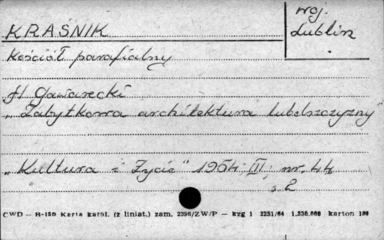 KRAŚNIK
woj.
Lublin
Kościół parafialny
H Gawarecki
„Zabytkowa architektura lubelszczyzny"
„Kultura i Życie" 1954 III nr. 44
s. 2
CWD — B-150 Karta katol. (z liniat.) zam. 2396/ZW/P — kzg 1 2231/64 1.230.000 karton 180